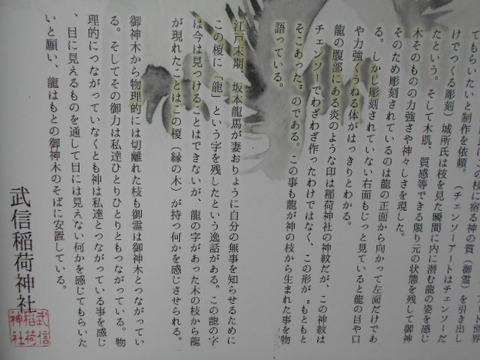 てもらいたいと制作を依頼。（チェンソーアートはチェンソーだ
けでつくる彫刻）城所氏は枝を見た瞬間に内に潜む龍の姿を感じ
たという。そして木肌、質感等できる限り元の状態を残して御神
木そのものの力強さや神々しさを現した。
そのため彫刻されているのは龍の正面から向かって左面だけであ
る。しかし彫刻されていない右面もじっと見ていると龍の目や口
や力強くうねる体がはっきりとわかる。
龍の腹部にある炎のような印は稲荷神社の神紋だが、この神紋は
チェンソーでわざわざ作ったわけではなく、この形が〝もともと
そこにあった〟のである。この事も龍が神の枝から生まれた事を物
語っている。
江戸末期、坂本龍馬が妻おりょうに自分の無事を知らせるために
この榎に「龍」という字を残したという逸話がある。この龍の字
は今は見つけることはできないが、龍の字があった木の枝から龍
が現れたことはこの榎（縁の木）が持つ何かを感じさせられる。
御神木から物理的には切離れた枝も御霊は御神木とつながってい
る。そしてその御力は私達ひとりひとりともつながっている。物
理的につながっていなくとも神は私達とつながっている事を感じ
、目に見えるものを通して目には見えない何かを感じてもらいた
いと願い、龍はもとの御神木のそばに安置している。
武信稲荷神社
武信
稲荷
神社